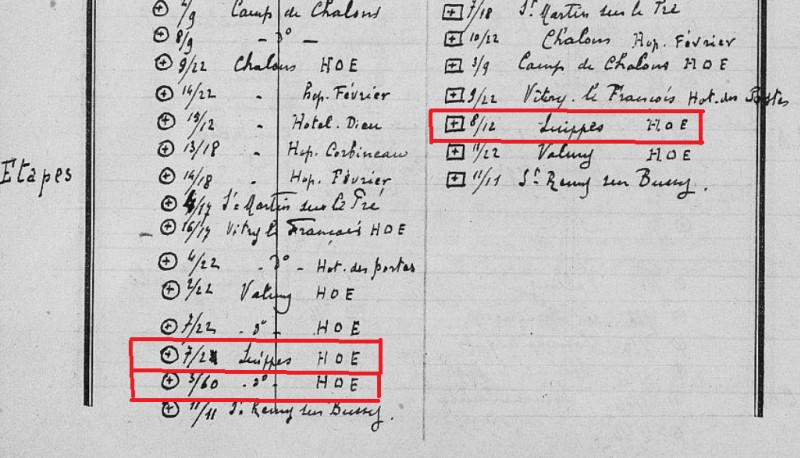 2/9 Camp de Chalons
8/9 - dº -
9/22 Chalons HOE
14/22 - Hop. Février
19/12 - Hotel. Dieu
13/18 - Hop. Corbineau
14/18 - Hop. Février
Etapes
4/17 St Martin sur le Pré
16/17 Vitry le François HOE
4/22 - dº - Hot. des postes
2/22 Valmy HOE
7/22 - dº - HOE
Suippes HOE
3/60 - dº - HOE
11/11 St Remy sur Bussy.
7/18 St Martin sur le Pré
10/22 Chalons Hop. Février
3/9 Camp de Chalons HOE
9/22 Vitry. le François Hot. des Postes
8/12 Suippes HOE
11/22 Valmy HOE
11/11 St Remy sur Bussy.